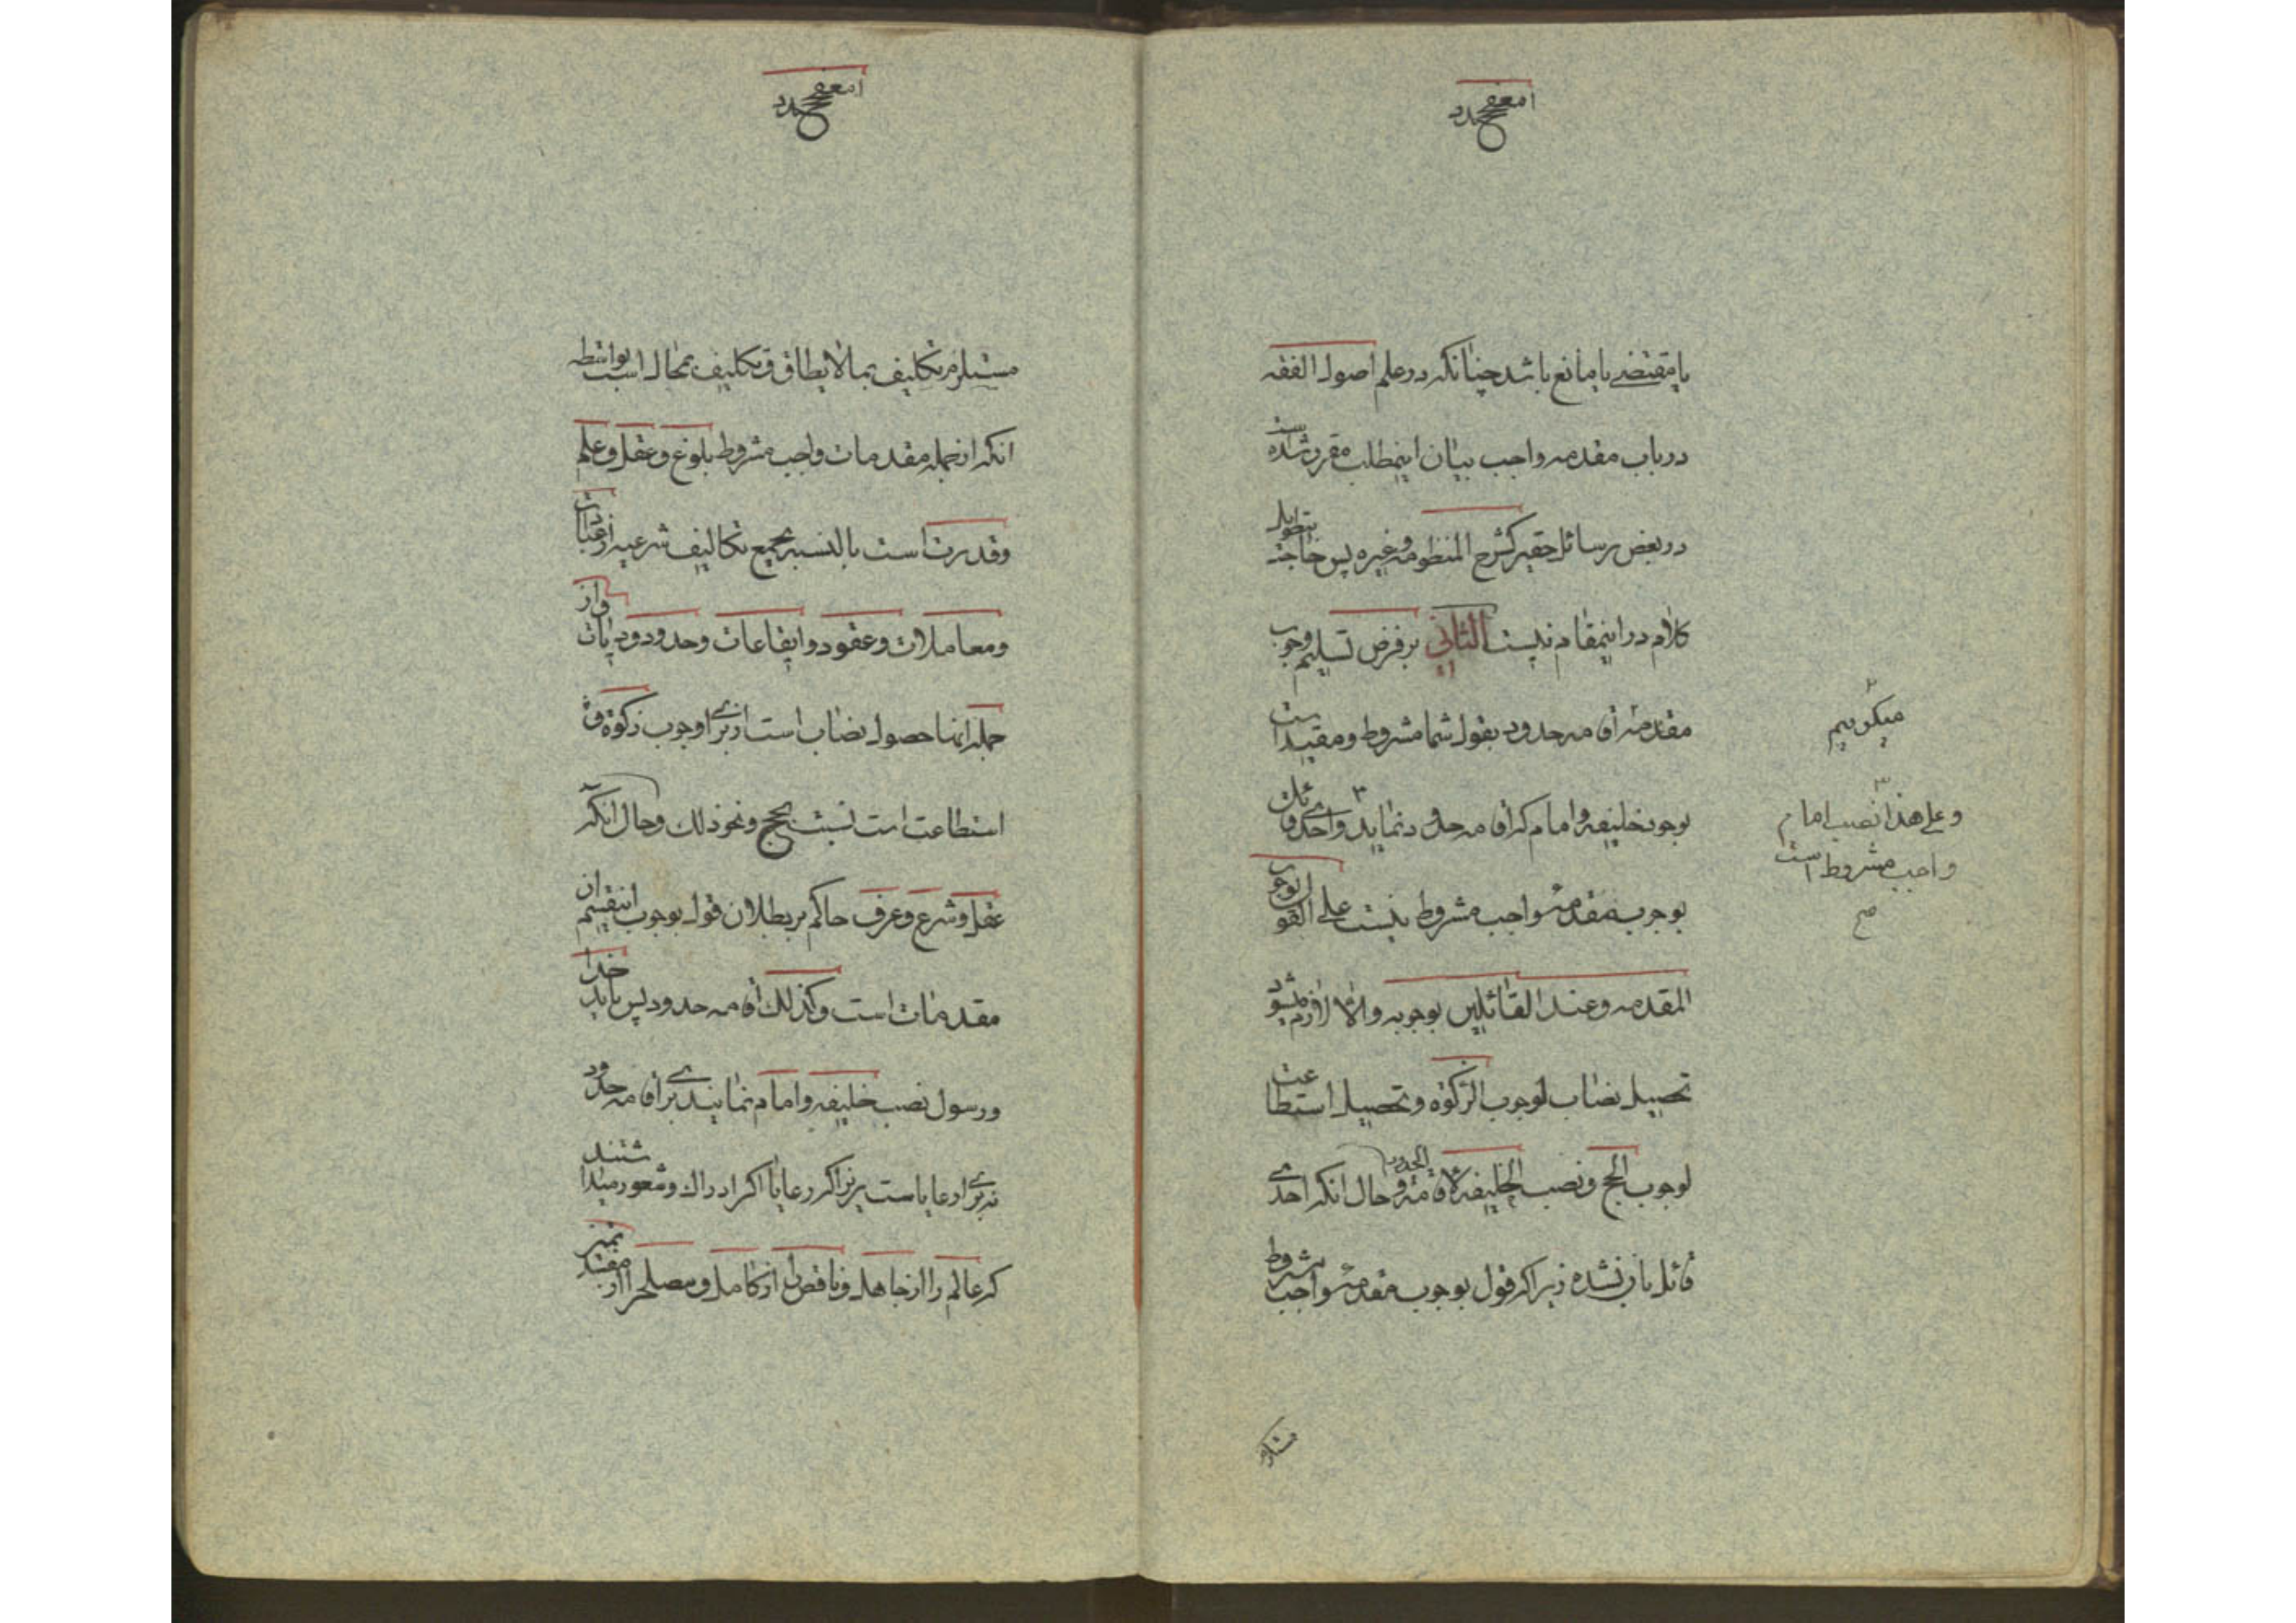 یا مقتضی یا مانع باشد چنانکه در علم اصول الفقه
در باب مقدمه واجب بیان اینمطلب مقرر شده است
در بعض رسائل حقیر کشرح المنظومه و غیره پس حاجت بتطویل
کلام در اینمقام نیست الثانی بر فرض تسلیم وجوب
مقدمه اقامه حدود بقول شما مشروط و مقید است
بوجود خلیفه و امام که اقامه حدود نماید ۳ و احدی قائل
بوجوب مقدمه واجب مشروط نیست علی القول بوجوب
المقدمه و عند القائلین بوجوبه والا لازم میشود
تحصیل نصاب لوجوب الزکوة و تحصیل استطاعت
لوجوب الحج و نصب الخلیفه لاقامة الحدود و حال انکه احدی
قائل بان نشده زیرا که قول بوجوب مقدمه واجب مشروط
میگوییم
۳
و علی هذا نصب امام
واجب مشروط است
صح
مستلزم تکلیف بما لا یطاق و تکلیف بمحال است بواسطه
انکه از جمله مقدمات واجب مشروط بلوغ و عقل و علم
و قدرت است بالنسبه بجمیع تکالیف شرعیه از عبادات
و معاملات و عقود و ایقاعات و حدود و دیات و از
جمله انها حصول نصاب است از برای وجوب زکوة و
استطاعت است نسبت بحج و نحو ذلک و حال انکه
عقل و شرع و عرف حاکم بر بطلان قول بوجوب اینقسم از
مقدمات است و کذلک اقامه حدود پس باید خدا
و رسول نصب خلیفه و امام نمایند برای اقامه حدود
نه برای رعایا است زیرا که رعایا اگر ادراک و شعور میداشتند
که عالم را از جاهل و ناقص را از کامل و مصلح را از مفسد تمیز